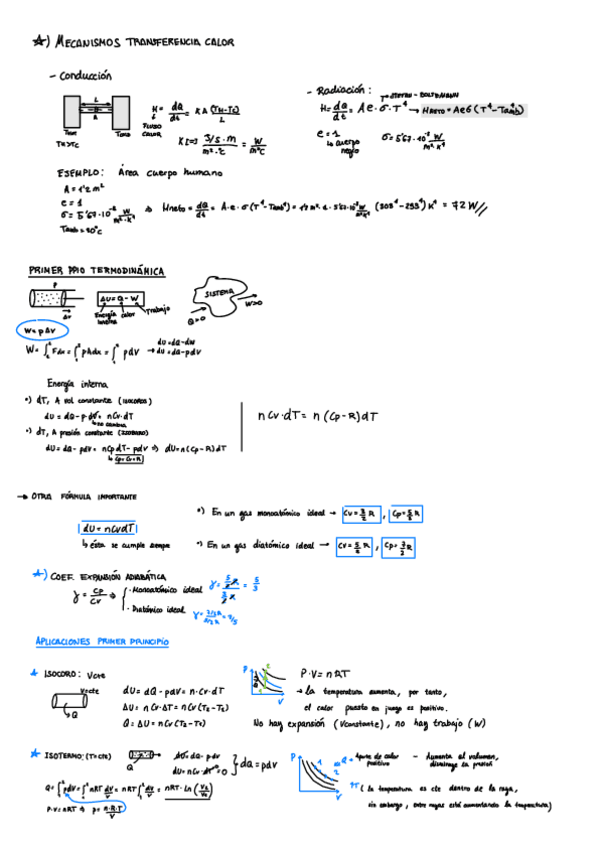 ☆) MECANISMOS TRANSFERENCIA CALOR
- Conducción
L
A
TH>TC
H = dQ/dt = KA (TH-TC)/L
↓ FLUJO CALOR
K [=] J/s · m / m² · °C = W/m°C
- Radiación:
H = dQ/dt = A e · σ · T⁴ → HNETO = A e σ (T⁴ - Tamb⁴)
e = 1
↳ cuerpo negro
σ = 5'67·10⁻⁸ W/m² K⁴
EJEMPLO: Área cuerpo humano
A = 1'2 m²
e = 1
σ = 5'67·10⁻⁸ W/m²·K⁴
Tamb = 20°C
⇒ Hneto = dQ/dt = A · e · σ (T⁴ - Tamb⁴) = 1'2 m² · 1 · 5'67·10⁻⁸ W/m²K⁴ (303⁴ - 293⁴) K⁴ = 72 W//
PRIMER PPIO TERMODINÁMICA
P
ΔV
ΔU = Q - W
Energía interna
calor
trabajo
SISTEMA
Q>0
W>0
W = p ΔV
W = ∫ F dx = ∫ p A dx = ∫ p dV
dU = dQ - dW
→ dU = dQ - pdV
Energía interna
•) dT, A vol constante (ISOCOROS)
dU = dQ - p·dV = nCv·dT
↳ no cambia
•) dT, A presión constante (ISOBARO)
dU = dQ - pdV = nCp dT - pdV ⇒ dU = n(Cp-R)dT
↳ Cp = Cv + R
n Cv · dT = n (Cp - R) dT
→ OTRA FÓRMULA IMPORTANTE
dU = nCvdT
↳ ésta se cumple siempre
•) En un gas monoatómico ideal → Cv = 3/2 R, Cp = 5/2 R
•) En un gas diatómico ideal → Cv = 5/2 R, Cp = 7/2 R
☆) COEF. EXPANSIÓN ADIABÁTICA
γ = Cp/Cv ⇒
· Monoatómico ideal γ = 5/2 R / 3/2 R = 5/3
· Diatómico ideal γ = 7/2 R / 5/2 R = 7/5
APLICACIONES PRIMER PRINCIPIO
☆ ISOCORO: Vcte
V=cte
Q
dU = dQ - pdV = n·Cv·dT
ΔU = n Cv · ΔT = n Cv (T2 - T1)
Q = ΔU = n Cv (T2 - T1)
P
V
P·V = nRT
→ La temperatura aumenta, por tanto,
el calor puesto en juego es positivo.
No hay expansión (Vconstante), no hay trabajo (W)
☆ ISOTERMO: (T=cte)
Q
dU = dQ - pdV
dU = nCv·dT = 0
} dQ = pdV
Q = ∫ pdV = ∫ nRT dV/V = nRT ∫ dV/V = nRT · Ln (V2/V1)
P·V = nRT ⇒ p = n·R·T/V
P
1
2
V
Aporte de calor positivo
- Aumenta el volumen, disminuye la presión
↑T ( la temperatura es cte dentro de la raya,
sin embargo, entre rayas está aumentando la temperatura)